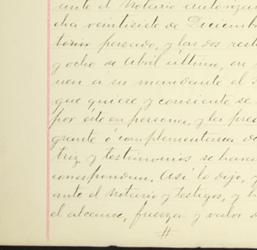 ante el Notario autorizan
cha veintisiete de Diciemb
torio pasado, y las dos rest
y ocho de Abril último, en
nen á su mandante el
que quiere y consiente se
por ésto en persona, y la pres
grante ó complementaria de
triz y testimonios se haran
correspondan. Así lo dijo, y
ante el Notario y testigos, y h
el alcance, fuerza y valor d